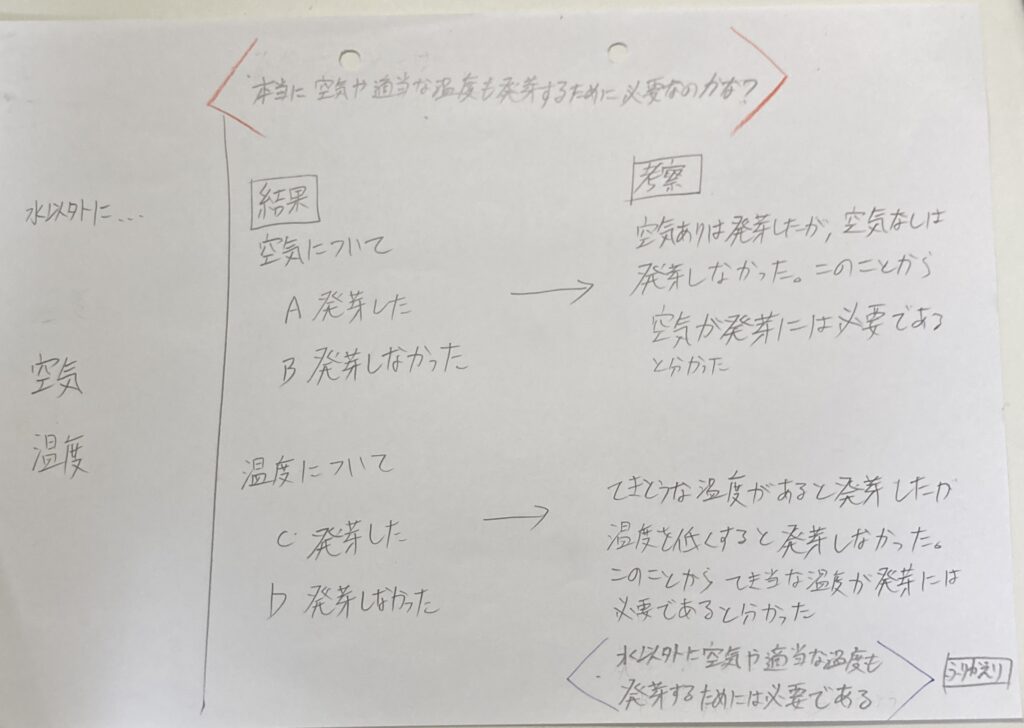 本当に空気や適当な温度も発芽するために必要なのかな?
水以外に...
空気
温度
結果
空気について
A 発芽した
B 発芽しなかった
温度について
C 発芽した
D 発芽しなかった
考察
空気ありは発芽したが,空気なしは
発芽しなかった。このことから
空気が発芽には必要である
と分かった
てきとうな温度があると発芽したが
温度を低くすると発芽しなかった。
このことから てき当な温度が発芽には
必要であると分かった
水以外に空気や適当な温度も
発芽するためには必要である
ふりかえり